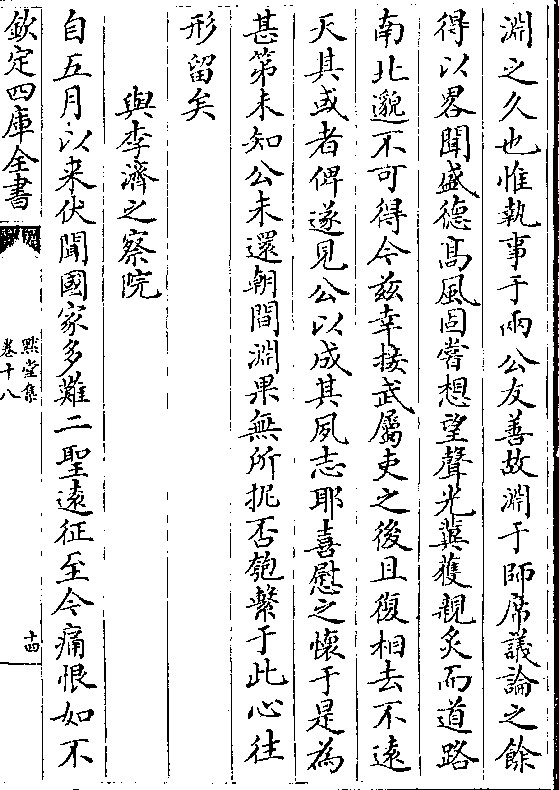 淵之久也惟執事于兩公友善故淵于師席議論之餘
得以畧聞盛德髙風固嘗想望聲光冀獲親炙而道路
南北邈不可得今兹幸接武屬吏之後且復相去不遠
天其或者俾遂見公以成其夙志耶喜慰之懷于是為
甚第未知公未還朝間淵果無所扼否匏繫于此心往
形留矣
與李濟之察院
自五月以来伏聞國家多難二聖逺征至今痛恨如不
欽定四庫全書
默堂集
卷十八
十四